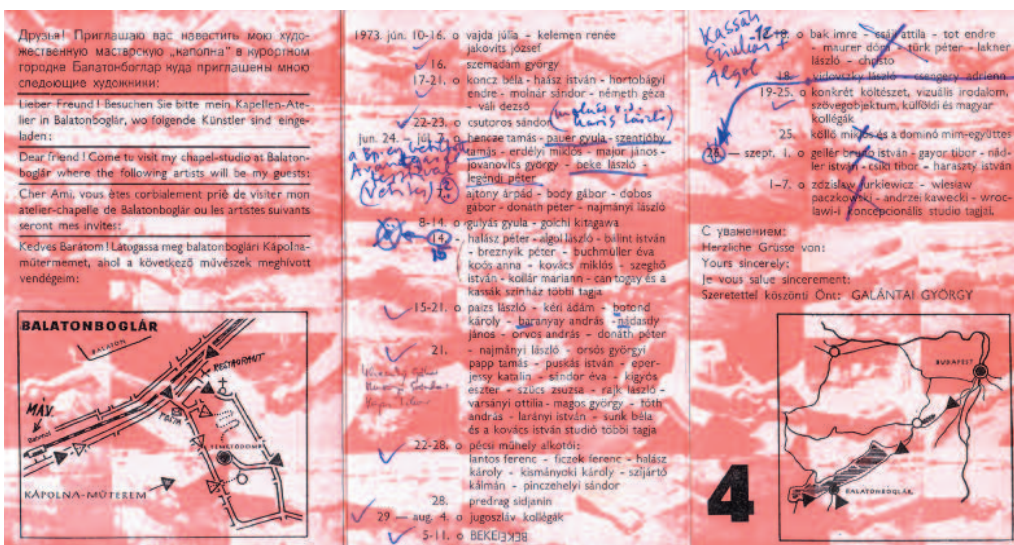 Друзья! Приглашаю вас навестить мою худо-
жественную мастарскую „капопна" в курортном
городке Балатонбоглар куда приглашены мною
следоющие художники:
Lieber Freund! Besuchen Sie bitte mein Kapellen-Ate-
lier in Balatonboglár, wo folgende Künstler sind einge-
laden:
Dear friend! Come to visit my chapel-studio at Balaton-
boglár where the following artists will be my guests:
Cher Ami, vous ètes corbialement priè de visiter mon
atelier-chapelle de Balatonboglár ou les artistes suivants
seront mes invites:
Kedves Barátom! Látogassa meg balatonboglári Kápolna-
műtermemet, ahol a következő művészek meghívott
vendégeim:
BALATONBOGLÁR
BALATON
RESTAURANT
MÁV.
Bahnhof
PATIKA
TEMETŐDOMB
KÁPOLNA-MŰTEREM
1973. jún. 10-16. o vajda júlia - kelemen renée
jakovits józsef
16. szemadám györgy
17-21. o koncz béla - haász istván - hortobágyi
endre - molnár sándor - németh géza
- váli dezső
22-23. o csutoros sándor (molnár v. d. haris lászló)
jun. 24. — júl. 7. o hencze tamás - pauer gyula - szentjóby
tamás - erdélyi miklós - major jános -
jovanovics györgy - beke lászló -
legéndi péter
7. ajtony árpád - body gábor - dobos
gábor - donáth péter - najmányi lászló
8-14. o gulyás gyula - goichi kitagawa
14. - halász péter - algol lászló - bálint istván
15
- breznyik péter - buchmüller éva
koós anna - kovács miklós - szeghő
istván - kollár mariann - can togay és a
kassák színház többi tagja
15-21. o paizs lászló - kéri ádám - botond
károly - baranyay andrás - nádasdy
jános - orvos andrás - donáth péter
21. - najmányi lászló - orsós györgyi
papp tamás - puskás istván - eper-
jessy katalin - sándor éva - kigyós
eszter - szűcs zsuzsa - rajk lászló -
varsányi ottilia - magos györgy - tóth
andrás - larányi istván - sunk béla
és a kovács istván studió többi tagja
22-28. o pécsi műhely alkotói:
lantos ferenc - ficzek ferenc - halász
károly - kismányoki károly - szijártó
kálmán - pinczehelyi sándor
28. predrag sidjanin
29 — aug. 4. o jugoszláv kollégák
5-11. o BEKE
Kassák
Szinház +
Algol
12-18. o bak imre - csáji attila - tot endre
- maurer dóra - türk péter - lakner
lászló - christo
18. vidovszky lászló - csengery adrienn
19-25. o konkrét költészet, vizuális irodalom,
szövegobjektum, külföldi és magyar
kollégák
25. kölló miklós és a dominó mim-együttes
26 — szept. 1. o gellér brunó istván - gayor tibor - nád-
ler istván - csiki tibor - haraszty istván
1-7. o zdzislaw jurkiewicz - wlesiaw
paczkowski - andrzei kawecki - wroc-
lawi-i koncepcionális studio tagjai.
С уванением:
Herzliche Grüsse von:
Yours sincerely:
Je vous salue sincerement:
Szeretettel köszönti Önt: GALÁNTAI GYÖRGY
BUDAPEST
BALATONBOGLÁR
4